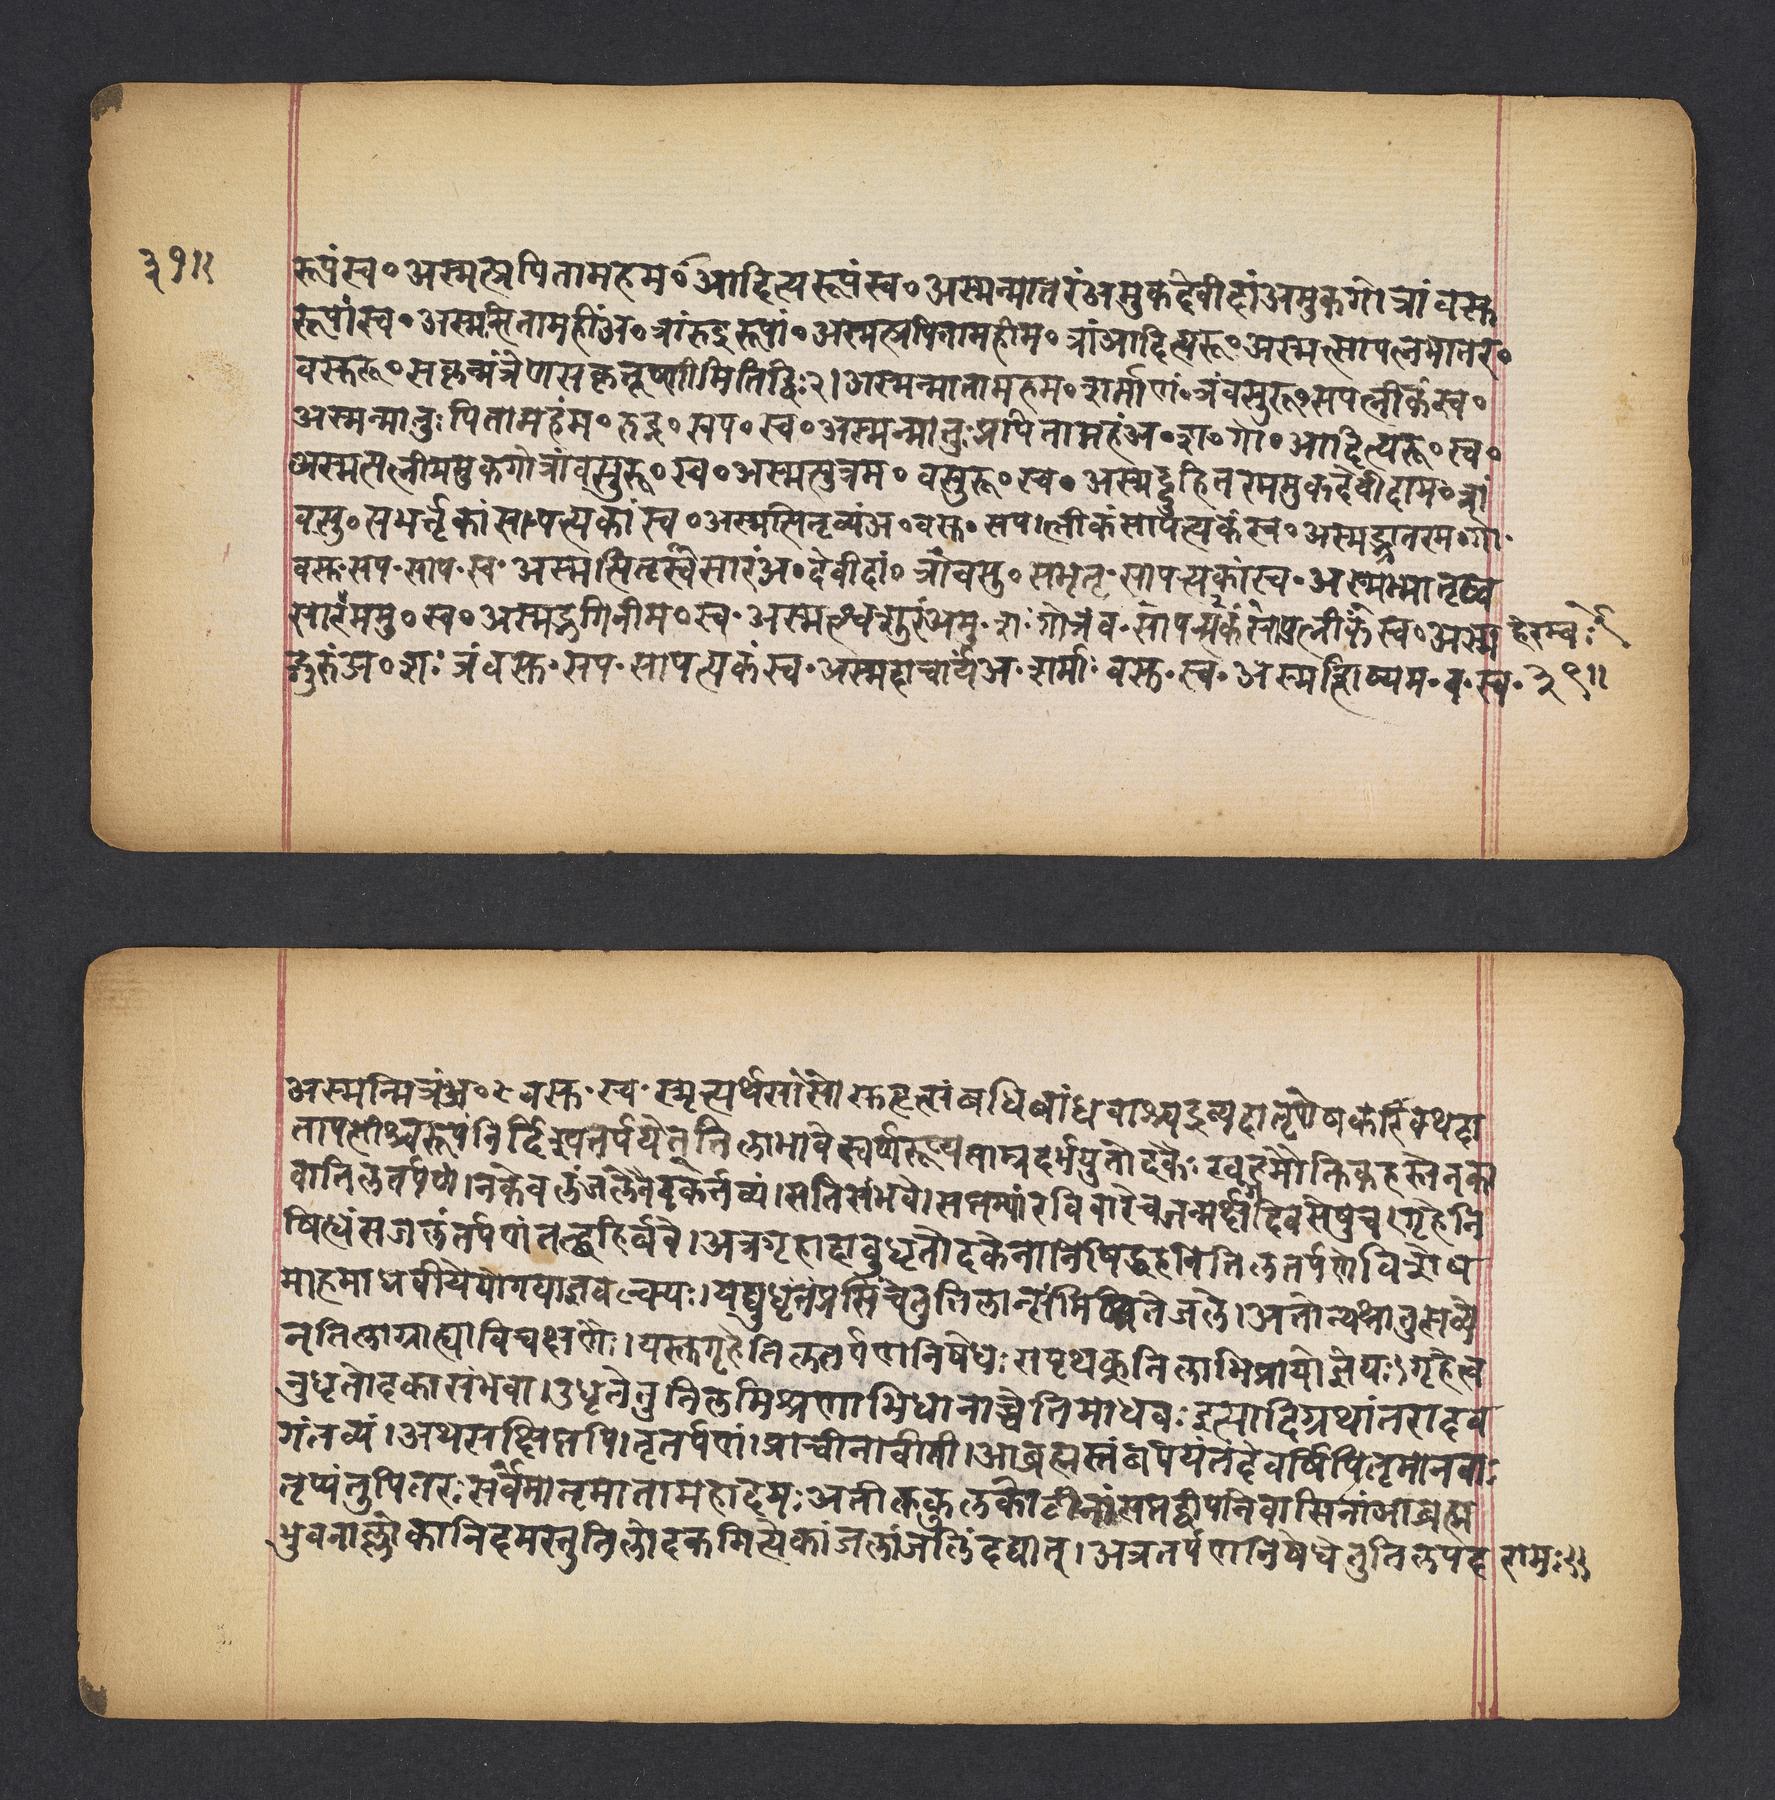 ३१॥
रूपंस्व॰अस्मत्प्रपितामहम॰आदित्यरूपंस्व॰अस्मन्मातरंअमुकदेवीदांअमुकगोत्रांवसु
रूपांस्व॰अस्मत्पितामहींअ॰त्रांरुद्ररूपां॰अस्मत्प्रपितामहीम॰त्रांआदित्यरू॰अस्मत्सापत्नमातरं॰
वसुरू॰सकृन्मंत्रेणसकृत्तूष्णीमितिद्विः२।अस्मन्मातामहम॰शर्माणं॰त्रंवसुरू॰सपत्नीकंस्व॰
अस्मन्मातुःपितामहंम॰रुद्र॰सप॰स्व॰अस्मन्मातुःप्रपितामहंअ॰शा॰गो॰आदित्यरू॰स्व॰
अस्मत्पत्नीममुकगोत्रांवसुरू॰स्व॰अस्मत्सुत्रम॰वसुरू॰स्व॰अस्मद्दुहितरममुकदेवीदाम॰त्रां
वसु॰सभर्तृकांसापत्यकांस्व॰अस्मत्पितृव्यंअ॰वसु॰सपत्नीकंसापत्यकंस्व॰अस्मद्भ्रातरम॰गो॰
वसु॰सप॰साप॰स्व॰अस्मत्पितृस्वसारंअ॰देवीदां॰त्रांवसु॰सभृतृ॰सापत्यकांस्व॰अस्मन्मातृष्व
सारंममु॰स्व॰अस्मद्भगिनीम॰स्व॰अस्मत्श्वशुरंअमु॰शः॰गोत्रंव॰सापत्यकंसपत्नीकंस्व॰अस्म हेरम्बः
द्गुरुंअ॰शः॰त्रंवसु॰सप॰सापत्यकंस्व॰अस्मदाचार्यंअ॰शर्माः॰वसु॰स्व॰अस्मच्छिष्यम॰व॰स्व॰ ३१॥
अस्मन्मित्रंअ॰वसु॰स्व॰स्मृत्यर्थसारे
तापत्नी निर्दिश्यतर्पयेत्तिलाभावेस्वर्णरूप्यताम्रदर्भयुतोदकैःखड्गमौक्तिकहस्तेनक
वातिलतर्पणं।नकेवलंजलेनैवकर्त्तव्यं।सतिसंभवे।सप्तम्यांरविवारेचजन्मर्क्षदिवसेषुच।गृहेनि
षिध्यंसजलंतर्पणंतत्द्बहिर्व्रवे।अत्रगृहादावुधृतोदकेनानिषिद्धहनितिलतर्पणेविशेष
माहमाधवीयेयोगयाज्ञवल्क्यः।यद्युधृतंप्रसिंचेत्तुतिलान्संमिश्रयेतेजले।अतोन्यथातुसव्ये
नतिलाग्राह्याविचक्षणैः।यस्तुगृहेतिलतर्पणनिषेधःसपृथक्तिलाभिप्रायोज्ञेयः।गृहेत्व
नुधृतोदकासंभवा।उधृतेतुतिलमिश्रणाभिधानाच्चेतिमाधवःइत्यादिग्रथांतरादव
गंतव्यं।अथसंक्षिप्तपितृतर्पणं।प्राचीनावीती।आब्रह्मस्तंबपर्यंतंदेवर्षिपितृमानवाः
तृप्यंतुपितरःसर्वेमातृमातामहादयःअतीतकुलकोटीनांसप्तद्वीपनिवासिनांआब्रह्म
भुवनाल्लोकानिदमस्तुतिलोदकमित्येकांजलांजलिंदद्यात्।अत्रतर्पणनिषेधेतुतिलपद रामः॥